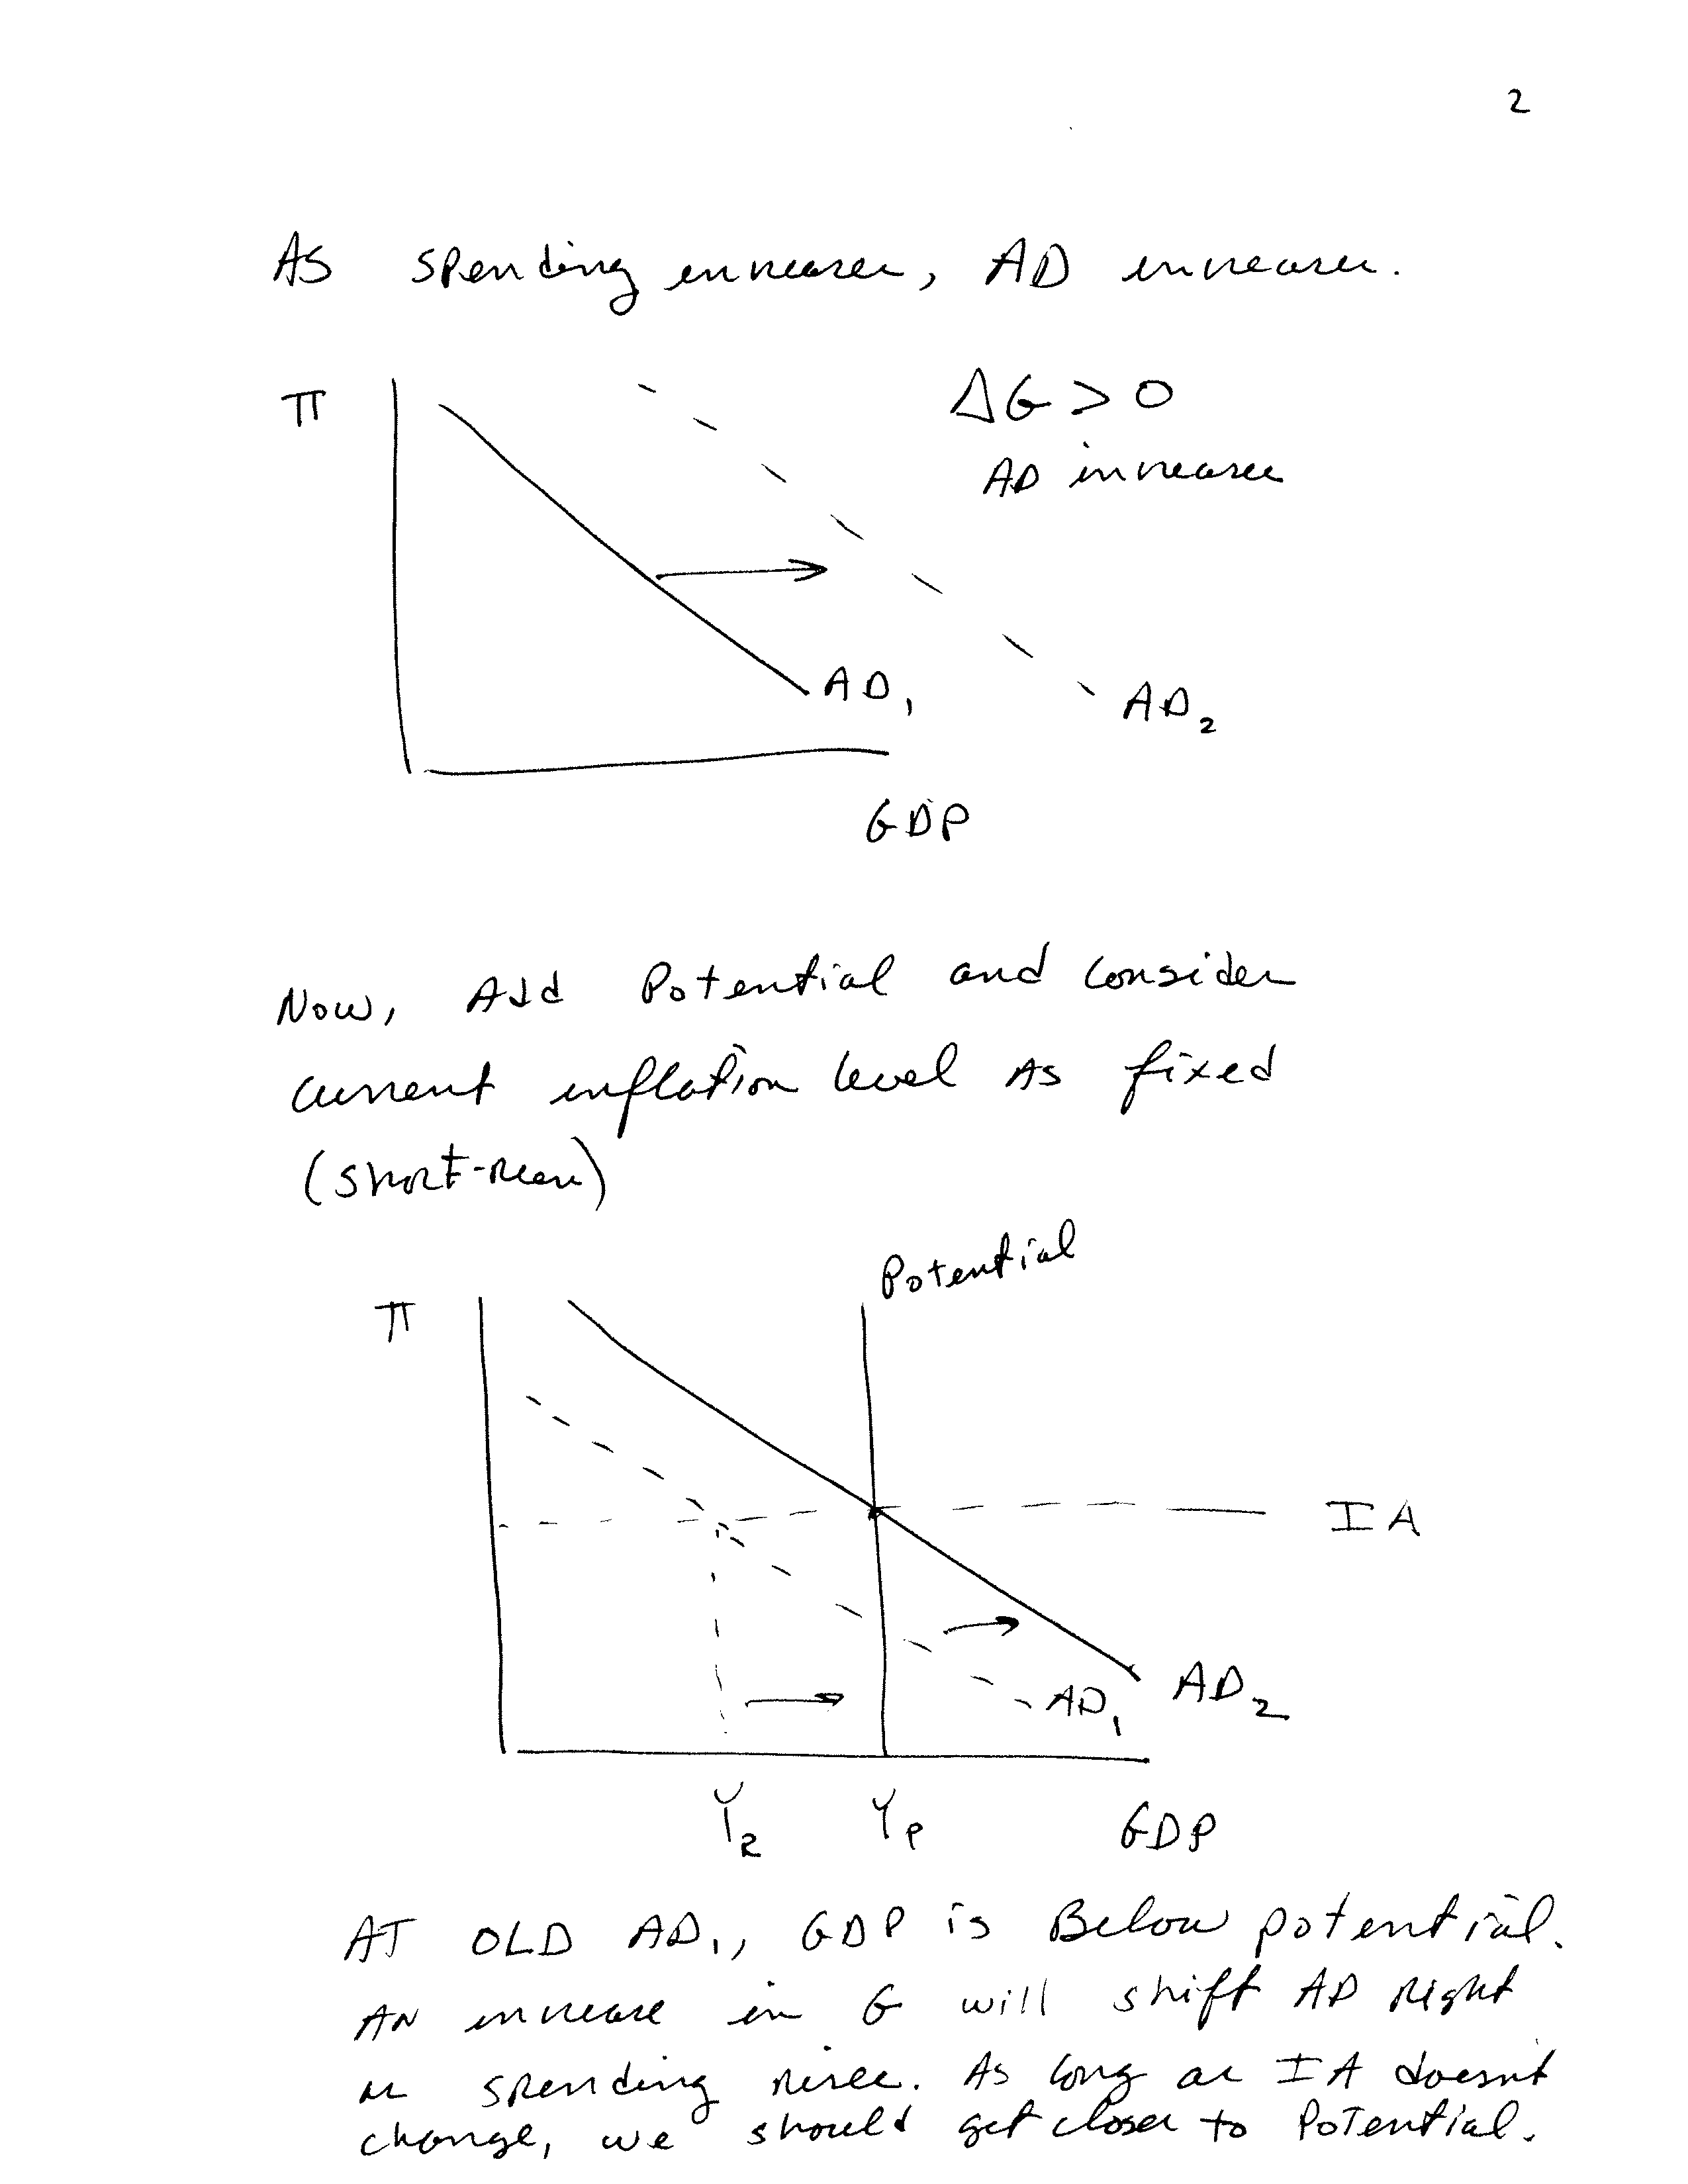 2
As spending increases, AD increases.
π
ΔG > 0
AD increases
AD₁
AD₂
GDP
Now, Add Potential and consider
current inflation level As fixed
(short-run)
Potential
π
IA
AD₁
AD₂
Y₂
Yₚ
GDP
AT OLD AD₁, GDP is Below potential.
AN increase in G will shift AD Right
as spending rises. As long as IA doesn't
change, we should get closer to Potential.